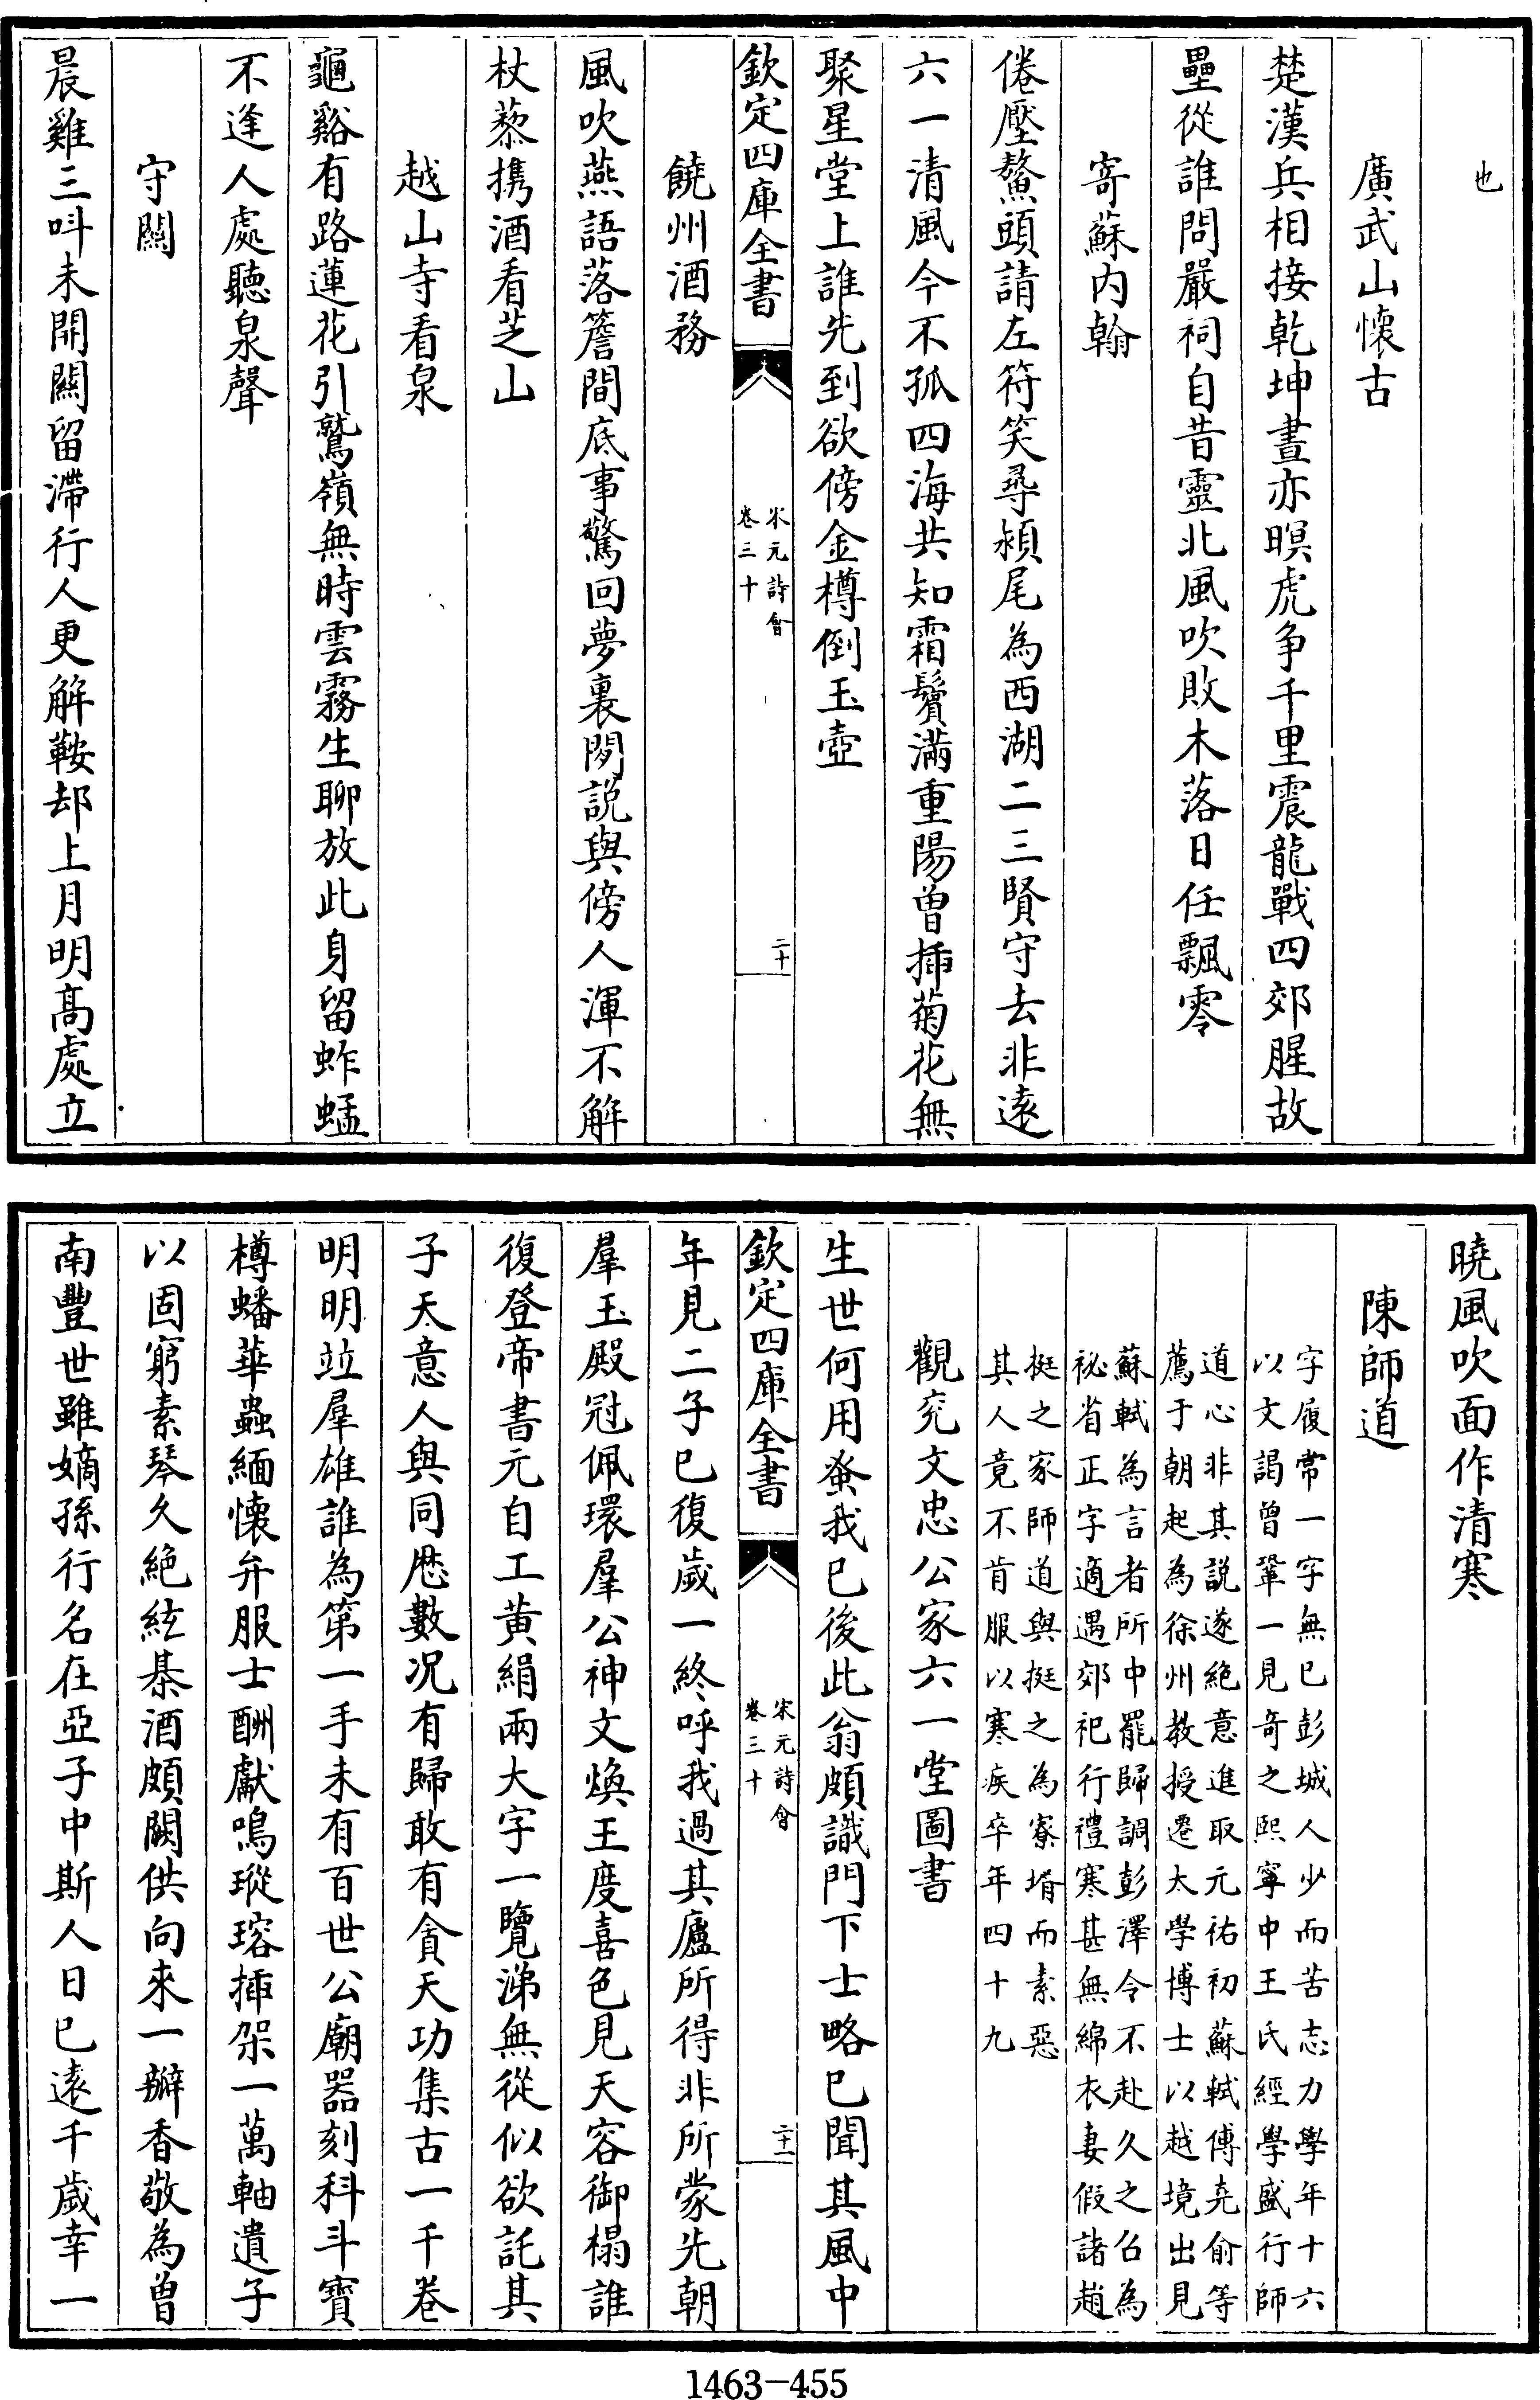 也
廣武山懷古
楚漢兵相接乾坤晝亦暝虎争千里震龍戰四郊腥故
壘從誰問嚴祠自昔靈北風吹敗木落日任飄零
寄蘇内翰
倦壓鰲頭請左符笑尋潁尾為西湖二三賢守去非遠
六一清風今不孤四海共知霜鬢滿重陽曾揷菊花無
聚星堂上誰先到欲傍金樽倒玉壺
欽定四庫全書
宋元詩會
卷三十
二十
饒州酒務
風吹燕語落簷間底事驚回夢裏閑説與傍人渾不解
杖藜携酒看芝山
越山寺看泉
龜谿有路蓮花引鷲嶺無時雲霧生聊放此身留蚱蜢
不逢人處聽泉聲
守關
晨雞三呌未開關留滯行人更解鞍却上月明高處立
曉風吹面作清寒
陳師道
字履常一字無已彭城人少而苦志力學年十六
以文謁曾鞏一見奇之熙寧中王氏經學盛行師
道心非其說遂絶意進取元祐初蘇軾傅堯俞等
薦于朝起為徐州教授遷太學博士以越境出見
蘇軾為言者所中罷歸調彭澤令不赴久之召為
祕省正字適遇郊祀行禮寒甚無綿衣妻假諸趙
挺之家師道與挺之為寮壻而素惡
其人竟不肯服以寒疾卒年四十九
觀兖文忠公家六一堂圖書
生世何用蚤我已後此翁頗識門下士略已聞其風中
欽定四庫全書
宋元詩會
卷三十
二十一
年見二子已復歲一終呼我過其廬所得非所蒙先朝
羣玉殿冠佩環羣公神文煥王度喜色見天容御榻誰
復登帝書元自工黄絹兩大字一覽涕無從似欲託其
子天意人與同厯數况有歸敢有貪天功集古一千卷
明明竝羣雄誰為第一手未有百世公廟器刻科斗寳
樽蟠華蟲緬懷弁服士酬獻鳴瑽瑢揷架一萬軸遺子
以固窮素琴久絶絃棊酒頗闕供向來一瓣香敬為曾
南豐世雖嫡孫行名在亞子中斯人日已遠千歲幸一
1463-455